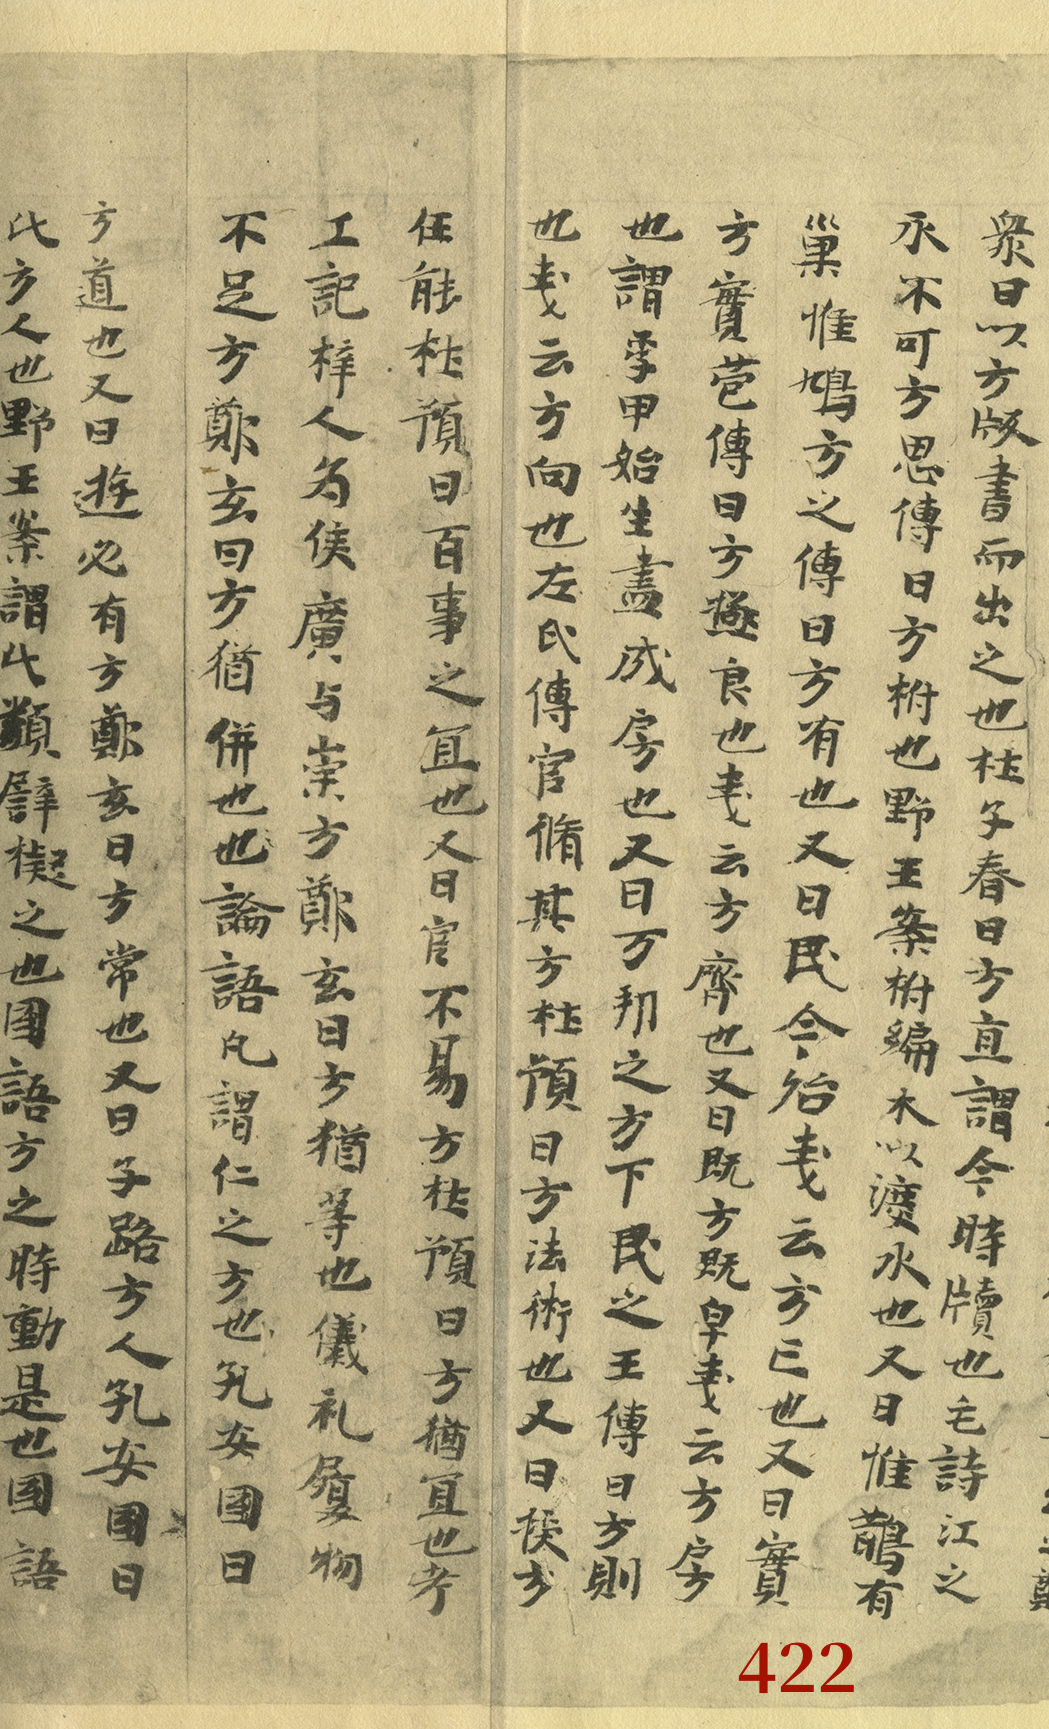 衆曰以方版書而出之也杜子春曰方直謂今時牘也毛詩江之
永不可方思傳曰方柎也野王案柎編木以渡水也又曰惟鵲有
巢惟鳩方之傳曰方有也又曰民今方殆戔云方已也又曰實
方實苞傳曰方極良也戔云方齊也又曰既方既皁戔云方房
也謂孚甲始生盡成房也又曰万邦之方下民之王傳曰方則
也戔云方向也左氏傳官脩其方杜預曰方法術也又曰授方
任能杜預曰百事之冝也又曰官不易方杜預曰方猶冝也考
工記梓人為侯廣与崇方鄭玄曰方猶等也儀礼履物
不足方鄭玄曰方猶併也也論語凢謂仁之方也孔安國曰
方道也又曰遊必有方鄭玄曰方常也又曰子路方人孔安國曰
比方人也野王案謂比類譬擬之也国語方之時動是也国語
422